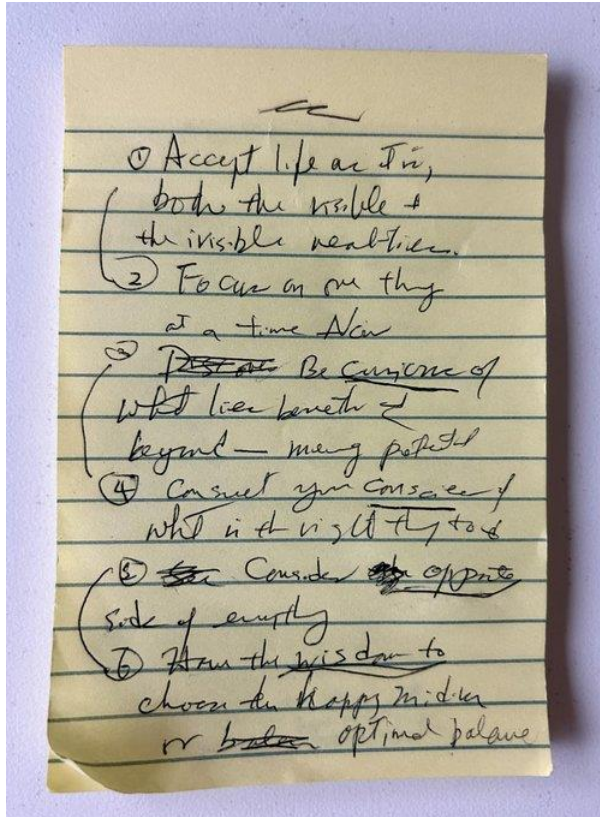 ① Accept life as it is,
both the visible &
the ivisible realities.
② Focus on one thing
at a time Now
③ Be curious of
what lies beneath &
beyond — meaning potential
④ Consult your conscience of
what is the right thing to do
⑤ Consider opposite
side of everything
⑥ Have the wisdom to
choose the happy
or optimal balance